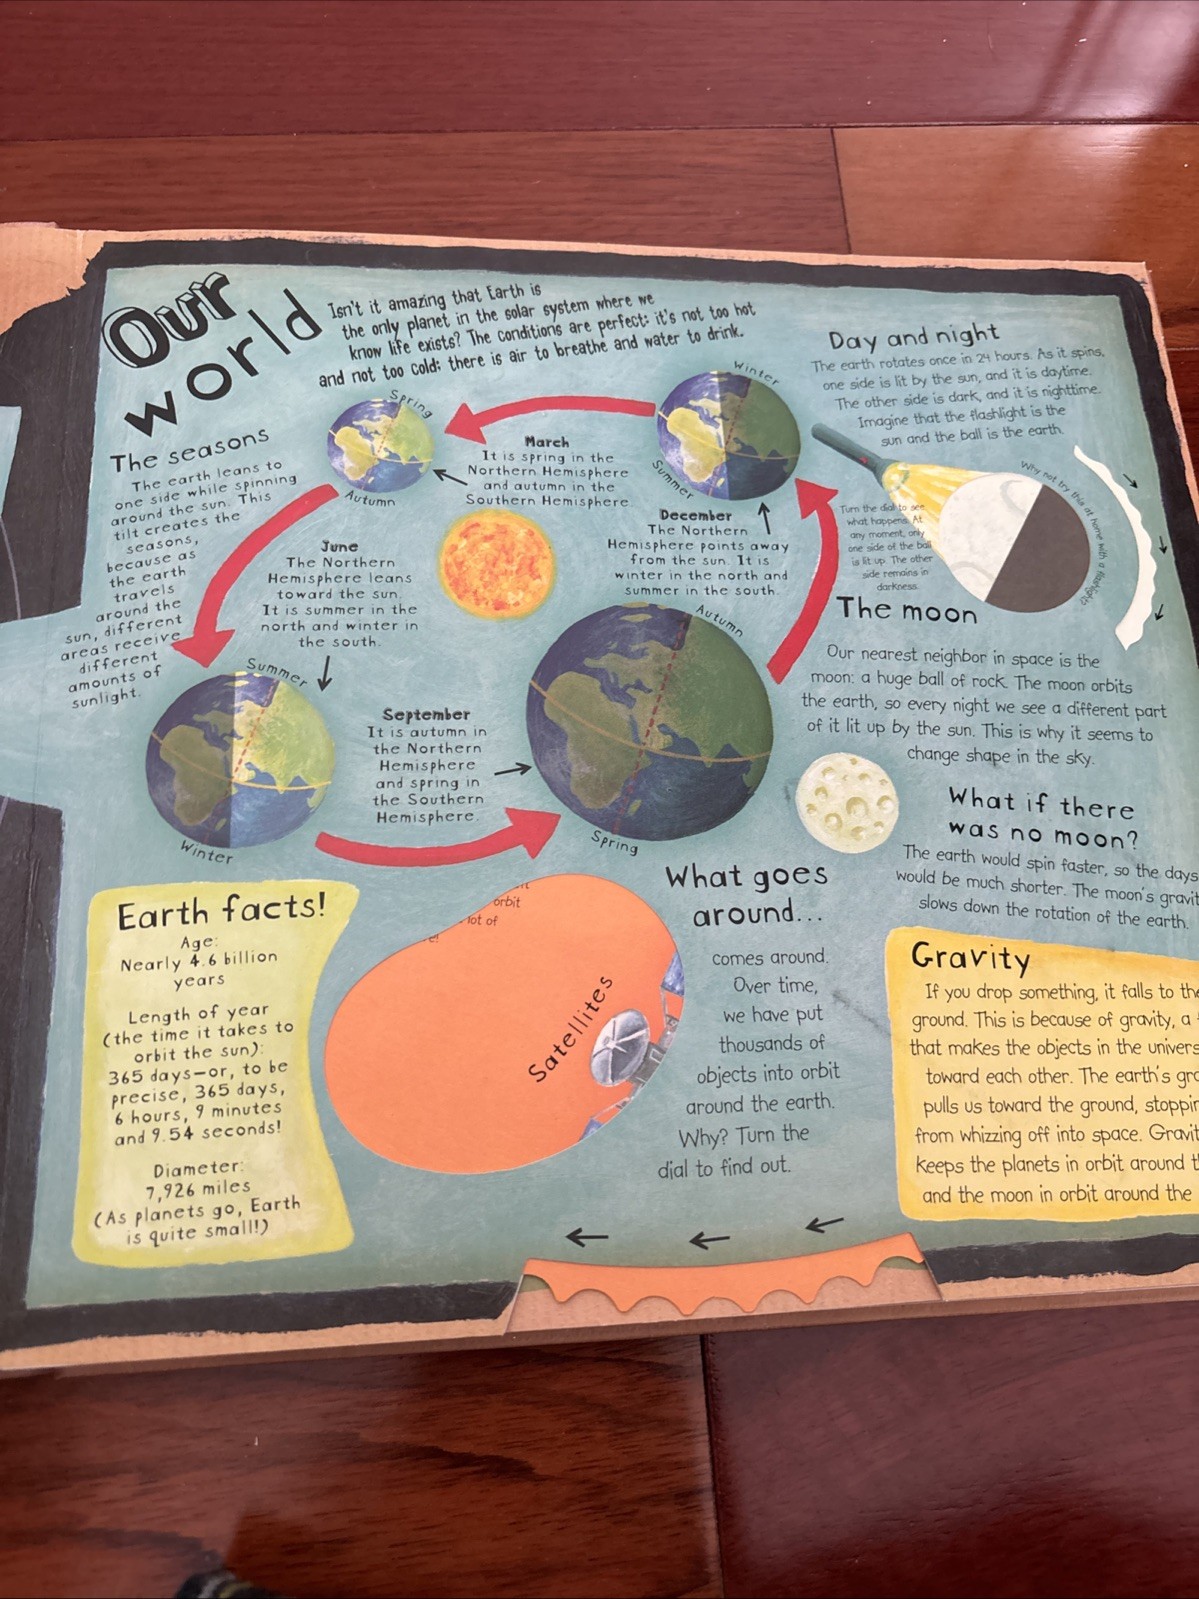 Our
world
Isn't it amazing that Earth is
the only planet in the solar system where we
know life exists? The conditions are perfect: it's not too hot
and not too cold; there is air to breathe and water to drink.
The seasons
The earth leans to
one side while spinning
around the sun. This
tilt creates the
seasons,
because as
the earth
travels
around the
sun, different
areas receive
different
amounts of
sunlight.
Spring
Autumn
March
It is spring in the
Northern Hemisphere
and autumn in the
Southern Hemisphere.
Winter
Summer
December
The Northern
Hemisphere points away
from the sun. It is
winter in the north and
summer in the south.
June
The Northern
Hemisphere leans
toward the sun.
It is summer in the
north and winter in
the south.
Summer
Winter
September
It is autumn in
the Northern
Hemisphere
and spring in
the Southern
Hemisphere.
Autumn
Spring
Day and night
The earth rotates once in 24 hours. As it spins,
one side is lit by the sun, and it is daytime.
The other side is dark, and it is nighttime.
Imagine that the flashlight is the
sun and the ball is the earth.
Why not try this at home with a flashlight?
Turn the dial to see
what happens. At
any moment, only
one side of the ball
is lit up. The other
side remains in
darkness.
The moon
Our nearest neighbor in space is the
moon: a huge ball of rock. The moon orbits
the earth, so every night we see a different part
of it lit up by the sun. This is why it seems to
change shape in the sky.
What if there
was no moon?
The earth would spin faster, so the days
would be much shorter. The moon's gravit
slows down the rotation of the earth.
Earth facts!
Age:
Nearly 4.6 billion
years
Length of year
(the time it takes to
orbit the sun):
365 days—or, to be
precise, 365 days,
6 hours, 9 minutes
and 9.54 seconds!
Diameter:
7,926 miles
(As planets go, Earth
is quite small!)
orbit
lot of
Satellites
What goes
around...
comes around.
Over time,
we have put
thousands of
objects into orbit
around the earth.
Why? Turn the
dial to find out.
Gravity
If you drop something, it falls to the
ground. This is because of gravity, a
that makes the objects in the univers
toward each other. The earth's gra
pulls us toward the ground, stoppin
from whizzing off into space. Gravit
keeps the planets in orbit around t
and the moon in orbit around the